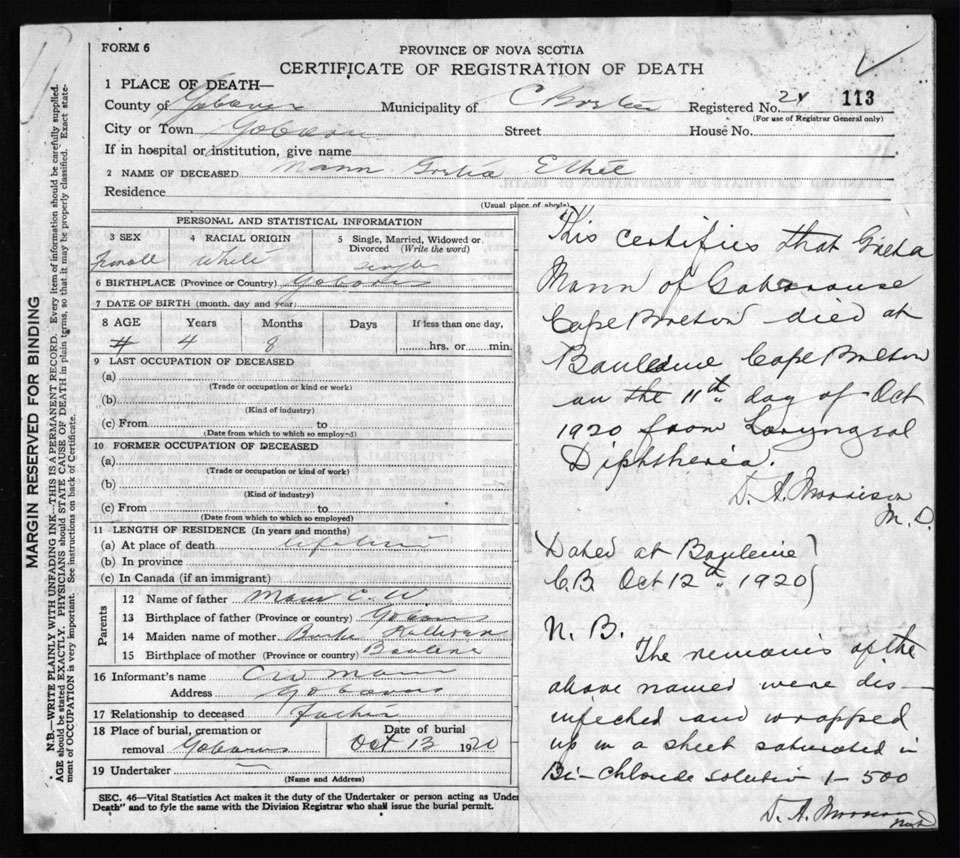 FORM 6
PROVINCE OF NOVA SCOTIA
CERTIFICATE OF REGISTRATION OF DEATH
1 PLACE OF DEATH—
County of Municipality of Registered No. 24 113
(For use of Registrar General only)
City or Town Street House No.
If in hospital or institution, give name
2 NAME OF DECEASED Mann Ethel
Residence
(Usual place of abode)
PERSONAL AND STATISTICAL INFORMATION
3 SEX 4 RACIAL ORIGIN 5 Single, Married, Widowed or Divorced (Write the word)
White Single
6 BIRTHPLACE (Province or Country)
7 DATE OF BIRTH (month, day and year)
8 AGE Years Months Days If less than one day,
4 8 hrs. or min.
9 LAST OCCUPATION OF DECEASED
(a)
(Trade or occupation or kind or work)
(b)
(Kind of industry)
(c) From to
(Date from which to which so employed)
10 FORMER OCCUPATION OF DECEASED
(a)
(Trade or occupation or kind of work)
(b)
(Kind of industry)
(c) From to
(Date from which to which so employed)
11 LENGTH OF RESIDENCE (In years and months)
(a) At place of death lifetime
(b) In province
(c) In Canada (if an immigrant)
Parents
12 Name of father Mann C. W
13 Birthplace of father (Province or country)
14 Maiden name of mother
15 Birthplace of mother (Province or country)
16 Informant's name C W Mann
Address
17 Relationship to deceased Father
18 Place of burial, cremation or removal Date of burial
Oct 13 1920
19 Undertaker
(Name and Address)
SEC. 46—Vital Statistics Act makes it the duty of the Undertaker or person acting as Unde
Death" and to fyle the same with the Division Registrar who shall issue the burial permit.
This certifies that Greta
Mann of Gabarouse
Cape Breton died at
Cape Breton
on the 11th day of Oct
1920 from Laryngeal
Diphtheria.
D. A. Morrison
M. D.
Dated at
C.B. Oct 12th 1920
N. B.
The remains of the
above named were dis-
infected and wrapped
up in a sheet saturated in
Bi-chloride solution 1-500
D. A. Morrison
MARGIN RESERVED FOR BINDING
N.B.—WRITE PLAINLY WITH UNFADING INK—THIS IS A PERMANENT RECORD. Every item of information should be carefully supplied.
AGE should be stated EXACTLY. PHYSICIANS should STATE CAUSE OF DEATH in plain terms, so that it may be properly classified. Exact state-
ment of OCCUPATION is very important. See instructions on back of Certificate.